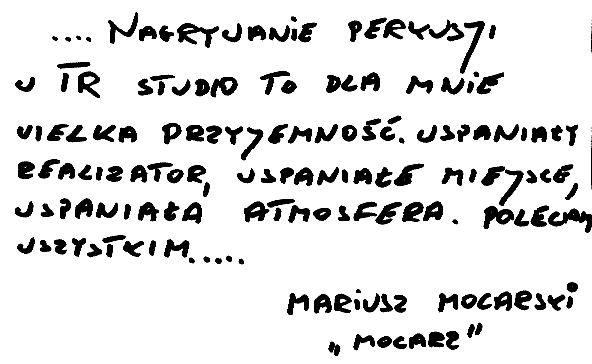 .... NAGRYWANIE PERKUSJI
W TR STUDIO TO DLA MNIE
WIELKA PRZYJEMNOŚĆ. WSPANIAŁY
REALIZATOR, WSPANIAŁE MIEJSCE,
WSPANIAŁA ATMOSFERA. POLECAM
WSZYSTKIM.....
MARIUSZ MOCARSKI
„MOCARZ”